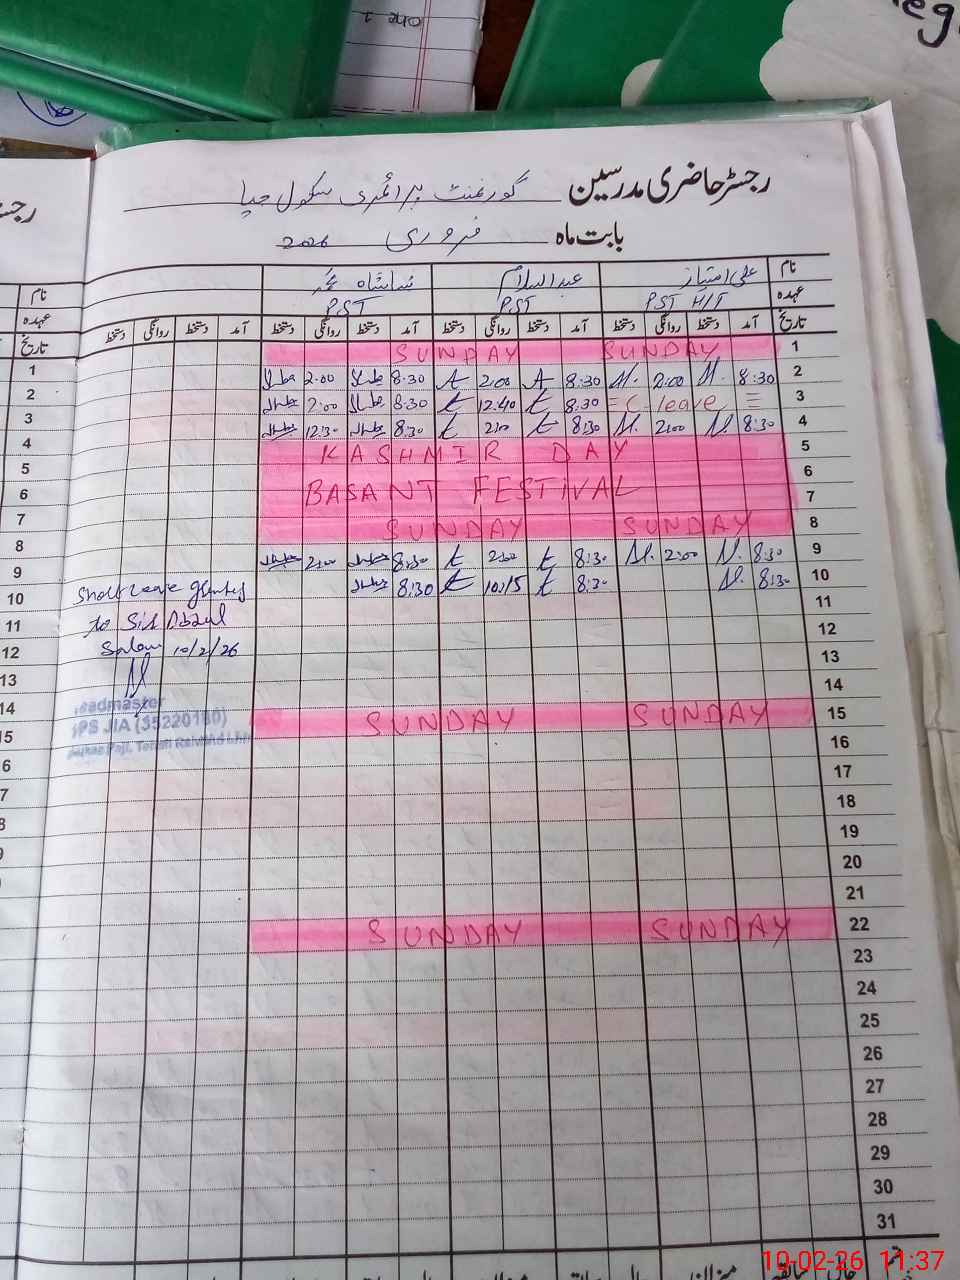 one
رجسٹر حاضری مدرسین گورنمنٹ پرائمری سکول جیا
بابت ماہ فروری 2026
نام علی امتیاز عبدالسلام
عہدہ PST H/T PST PST
تاریخ آمد دستخط روانگی دستخط آمد دستخط روانگی دستخط آمد دستخط روانگی دستخط آمد دستخط روانگی دستخط
1 SUNDAY SUNDAY
2 8:30 2:00 8:30 2:00 8:30 2:00
3 = C. leave = 8:30 12:40 8:30 2:00
4 8:30 2:00 8:30 2:00 8:30 12:30
5 KASHMIR DAY
6
7 BASANT FESTIVAL
8 SUNDAY SUNDAY
9 8:30 2:00 8:30 2:00 8:30 2:00
10 8:30 8:30 10:15 8:30
Short leave
to Sir Abdul
Salam 10/2/26
Headmaster
GPS JIA (35220180)
11
12
13
14
15 SUNDAY SUNDAY
16
17
18
19
20
21
22 SUNDAY SUNDAY
23
24
25
26
27
28
29
30
31
نام
عہدہ
تاریخ
1
2
3
4
5
6
7
8
9
10
11
12
13
14
10-02-26 11:37